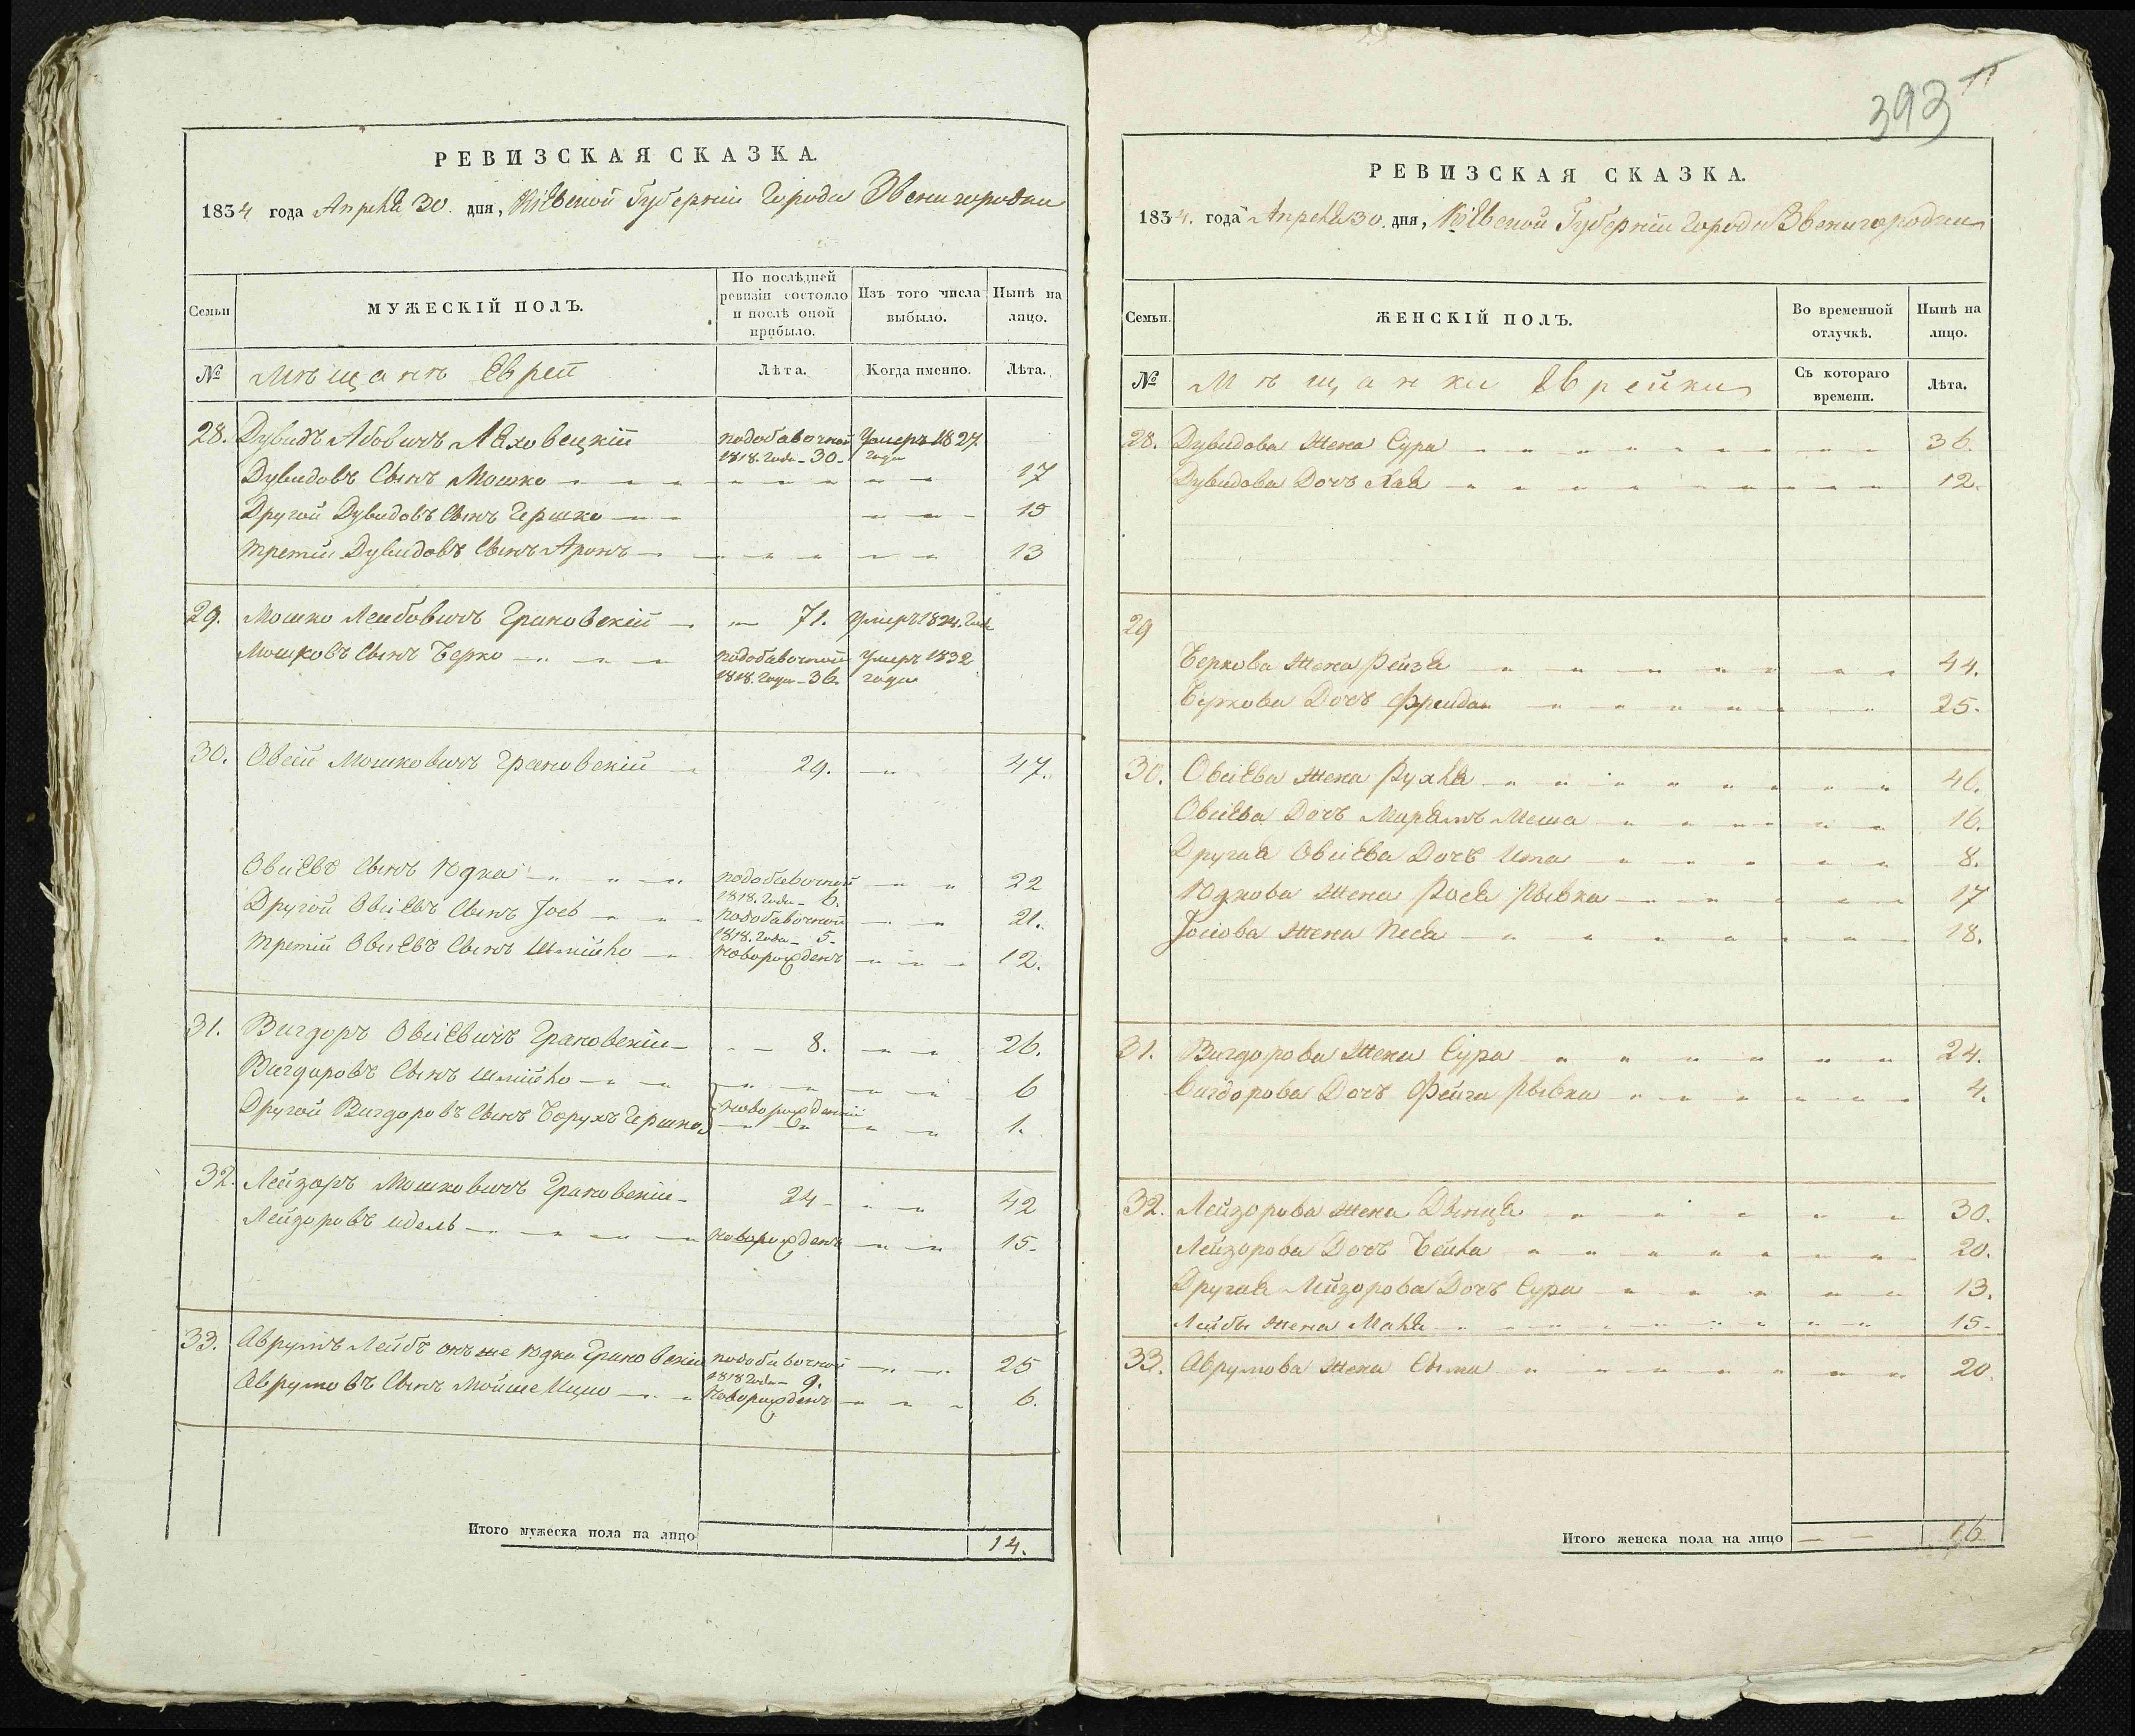 РЕВИЗСКАЯ СКАЗКА.
1834 года Апреля 30. дня, Кіевской Губерніи Города Звенигородки
Семьи
МУЖЕСКІЙ ПОЛЪ.
По послѣдней ревизіи состояло и послѣ оной прибыло.
Изъ того числа выбыло.
Нынѣ на лицо.
№ Мѣщане Евреи Лѣта. Когда именно. Лѣта.
28. Дувидъ Абовичъ Ляховецкій подобавочной 1818. года - 30 - Умеръ 1827 года
Дувидовъ Сынъ Мошко 17
Другой Дувидовъ Сынъ Гершко 15
Третій Дувидовъ Сынъ Аронъ 13
29. Мошко Лейбовичъ Грановскій 71. Умеръ 1824. года
Мошковъ Сынъ Берко подобавочной 1818. года - 36. Умеръ 1832 года
30. Овсій Мошковичъ Грановскій 29. 47.
Овсіевъ Сынъ Юдка подобавочной 1818. года - 6. 22
Другой Овсіевъ Сынъ Іось подобавочной 1818. года - 5. 21.
Третій Овсіевъ Сынъ Шмійло Новорожденъ 12.
31. Вигдоръ Овсіевичъ Грановскій 8. 26.
Вигдоровъ Сынъ Шмійло 6
Другой Вигдоровъ Сынъ Борухъ Гершко новорожденніи 1.
32. Лейзоръ Мошковичъ Грановскій 24 42
Лейзоровъ Идель Новорожденъ 15.
33. Аврумъ Лейбъ онъ же Юдка Грановскій подобавочной 1818 года - 9. 25
Аврумовъ Сынъ Мойше Ицко Новорожденъ 6.
Итого мужеска пола на лицо 14.
393
РЕВИЗСКАЯ СКАЗКА.
1834. года Апреля 30. дня, Кіевской Губерніи Города Звенигородки
Семьи.
ЖЕНСКІЙ ПОЛЪ.
Во временной отлучкѣ.
Нынѣ на лицо.
№ Мѣщанки Еврейки Съ котораго времени. Лѣта.
28. Дувидова Жена Сура 36.
Дувидова Дочъ Хая 12.
29
Беркова Жена Рейзя 44.
Беркова Дочъ Фрейда 25.
30. Овсіева Жена Рухля 46.
Овсіева Дочъ Мирямъ Меша 16.
Другая Овсіева Дочъ Ита 8.
Юдкова Жена Рося Рывка 17
Іосіова Жена Песя 18.
31. Вигдорова Жена Сура 24.
Вигдорова Дочъ Фейга Рывка 4.
32. Лейзорова Жена Дынця 30.
Лейзорова Дочъ Бейла 20.
Другая Лейзорова Дочъ Сура 13.
Лейбы Жена Маля 15.
33. Аврумова Жена Сыма 20.
Итого женска пола на лицо 16